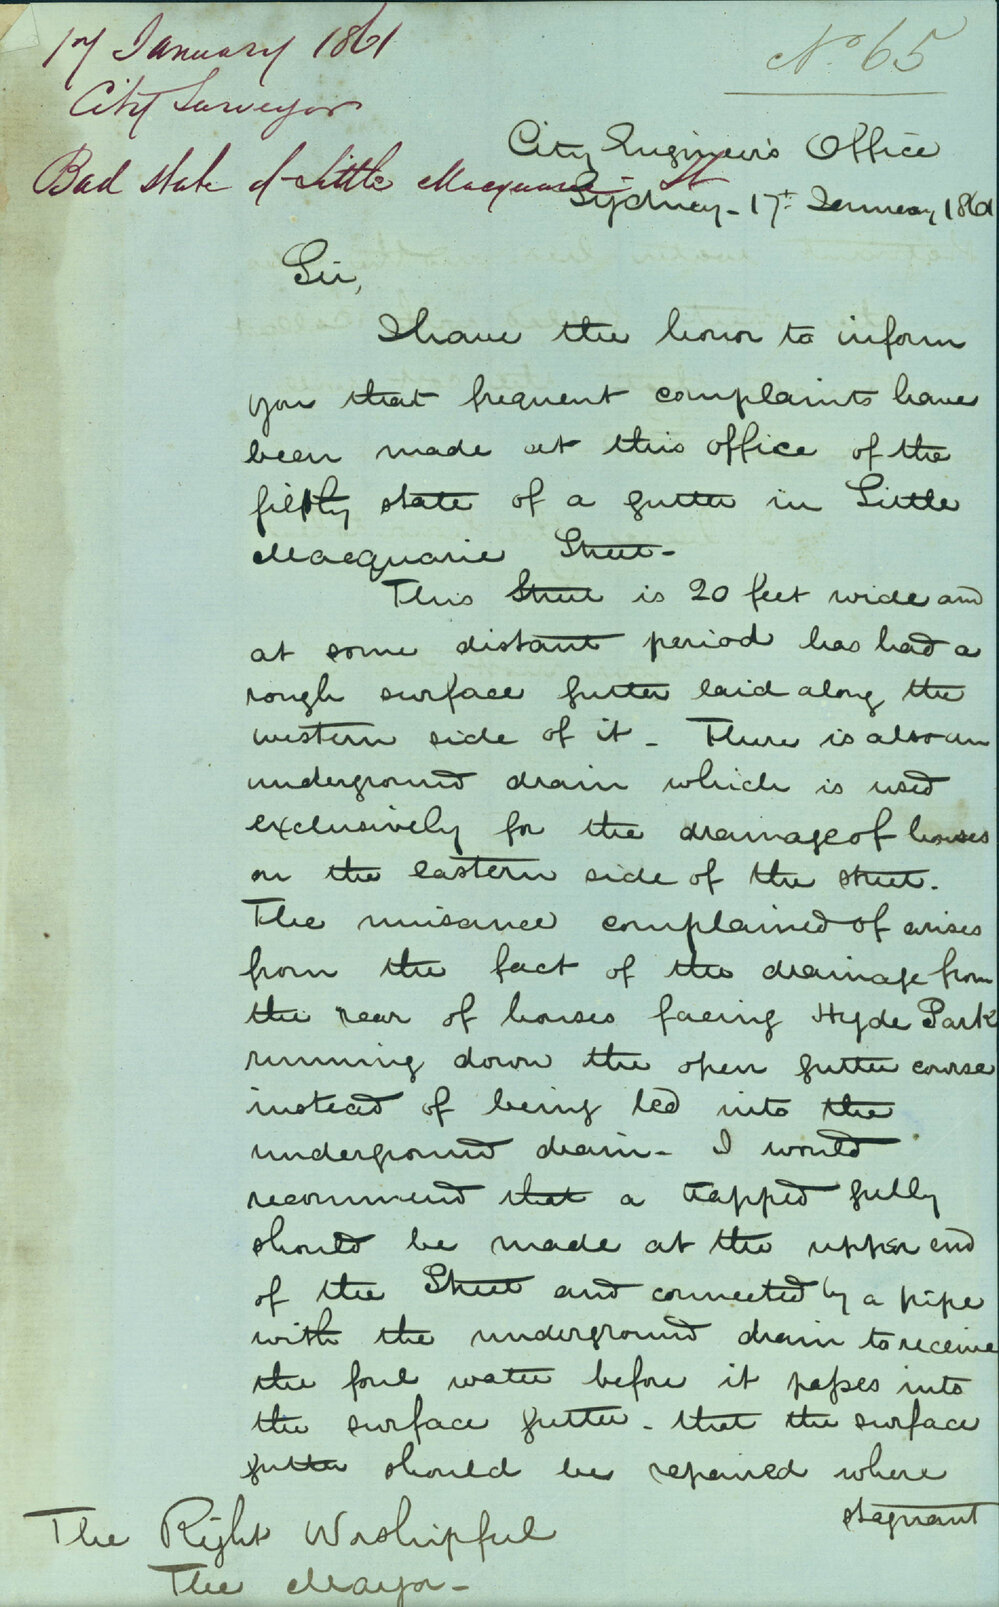 17 January 1861
City Surveyor
Bad state of Little Macquarie St
No. 65
City Engineer's Office
Sydney - 17th January 1861
Sir,
I have the honor to inform
you that frequent complaints have
been made at this office of the
filthy state of a gutter in Little
Macquarie Street -
This Street is 20 feet wide and
at some distant period has had a
rough surface gutter laid along the
western side of it - There is also an
underground drain which is used
exclusively for the drainage of houses
on the eastern side of the street.
The nuisance complained of arises
from the fact of the drainage from
the rear of houses facing Hyde Park
running down the open gutter course
instead of being led into the
underground drain - I would
recommend that a trapped gully
should be made at the upper end
of the Street and connected by a pipe
with the underground drain to receive
the foul water before it passes into
the surface gutter - that the surface
gutter should be repaired where
stagnant
The Right Worshipful
The Mayor -